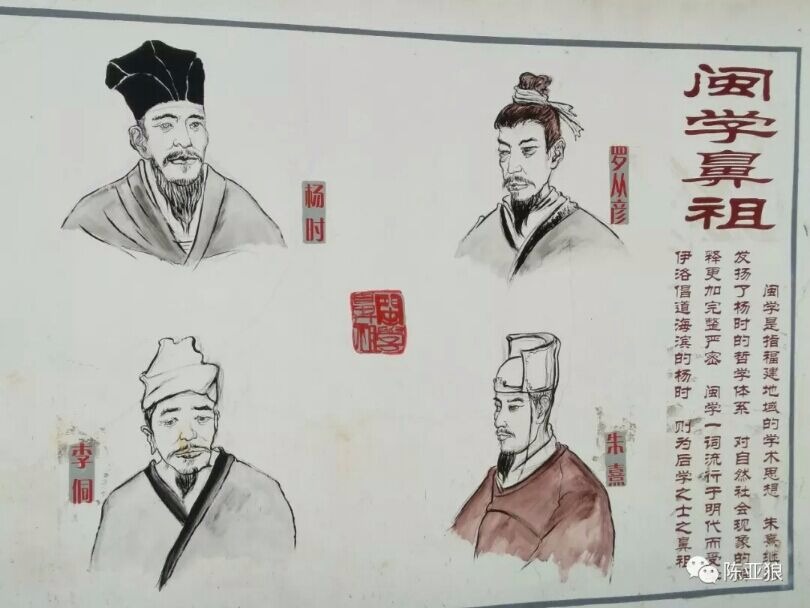 闽学鼻祖
闽学是指福建地域的学术思想 朱熹继
发扬了杨时的哲学体系 对自然社会现象的
释更加完整严密 闽学一词流行于明代而受
伊洛倡道海滨的杨时 则为后学之士之鼻祖
罗从彦
杨时
閩學
鼻祖
朱熹
李侗
陈亚狼